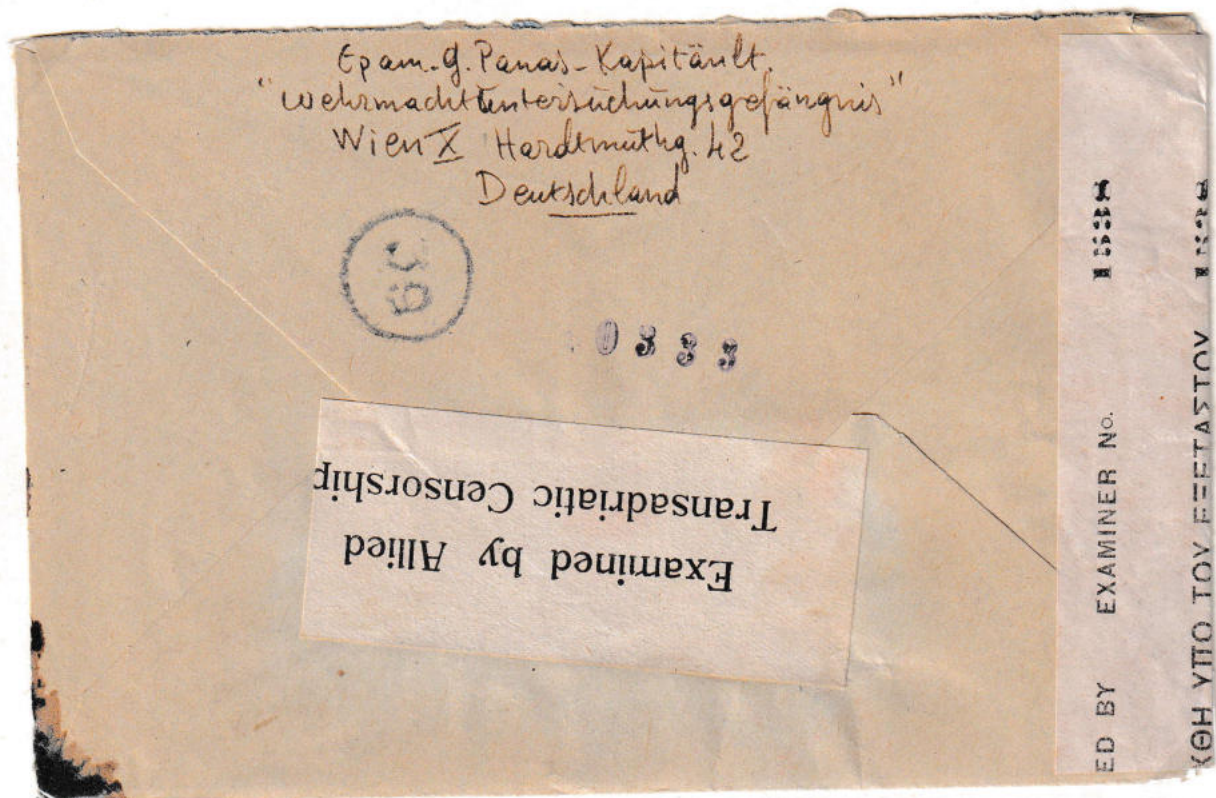 Epam. G. Panas - Kapitänlt.
"Wehrmachtuntersuchungsgefängnis"
Wien X Hardtmuthg. 42
Deutschland
39
0333
Examined by Allied
Transadriatic Censorship
ED BY EXAMINER No.
ΧΘΗ ΥΠΟ ΤΟΥ ΕΞΕΤΑΣΤΟΥ